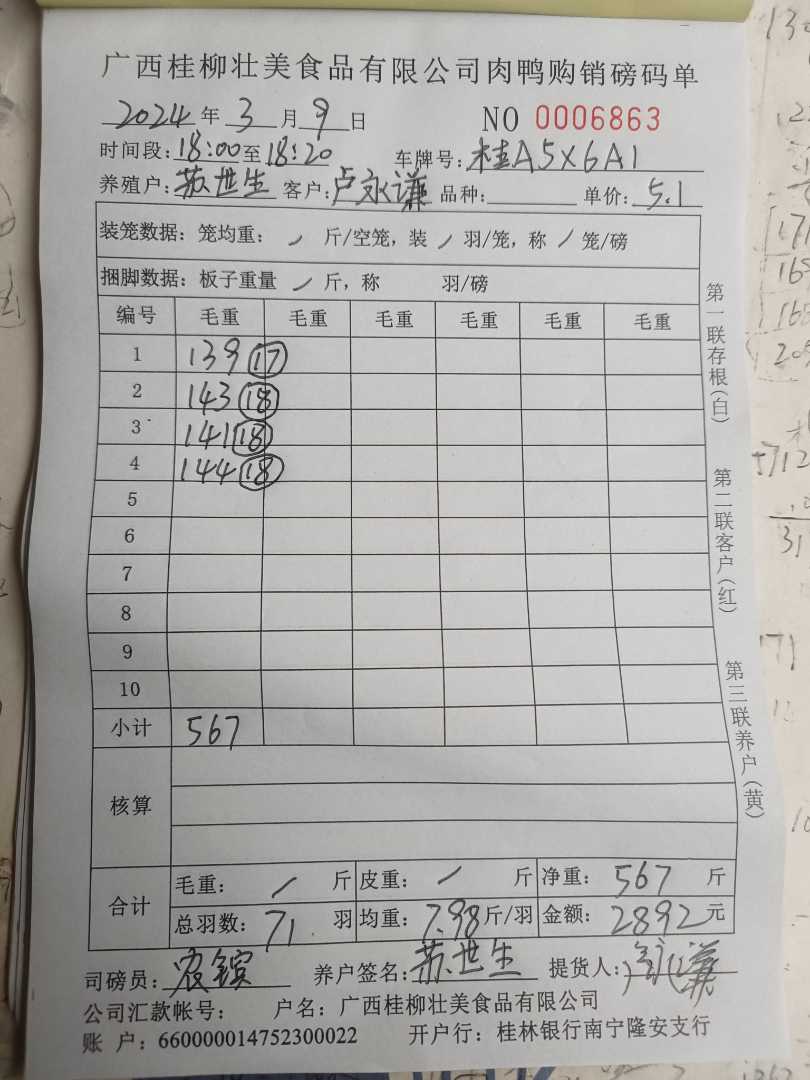 广西桂柳壮美食品有限公司肉鸭购销磅码单
2024年3月9日 NO 0006863
时间段:18:00至18:20 车牌号:桂A5X6A1
养殖户:苏世生 客户:卢永谦 品种: 单价:5.1
装笼数据:笼均重: / 斤/空笼,装 / 羽/笼,称 / 笼/磅
捆脚数据:板子重量 / 斤,称 羽/磅
编号 毛重 毛重 毛重 毛重 毛重 毛重
1 139 17
2 143 18
3 141 18
4 144 18
5
6
7
8
9
10
小计 567
核算
合计 毛重: / 斤 皮重: / 斤 净重: 567 斤
总羽数: 71 羽 均重: 7.98 斤/羽 金额: 2892 元
司磅员:农镔 养户签名:苏世生 提货人:
公司汇款帐号: 户名:广西桂柳壮美食品有限公司
账 户:660000014752300022 开户行:桂林银行南宁隆安支行
第一联存根(白)
第二联客户(红)
第三联养户(黄)